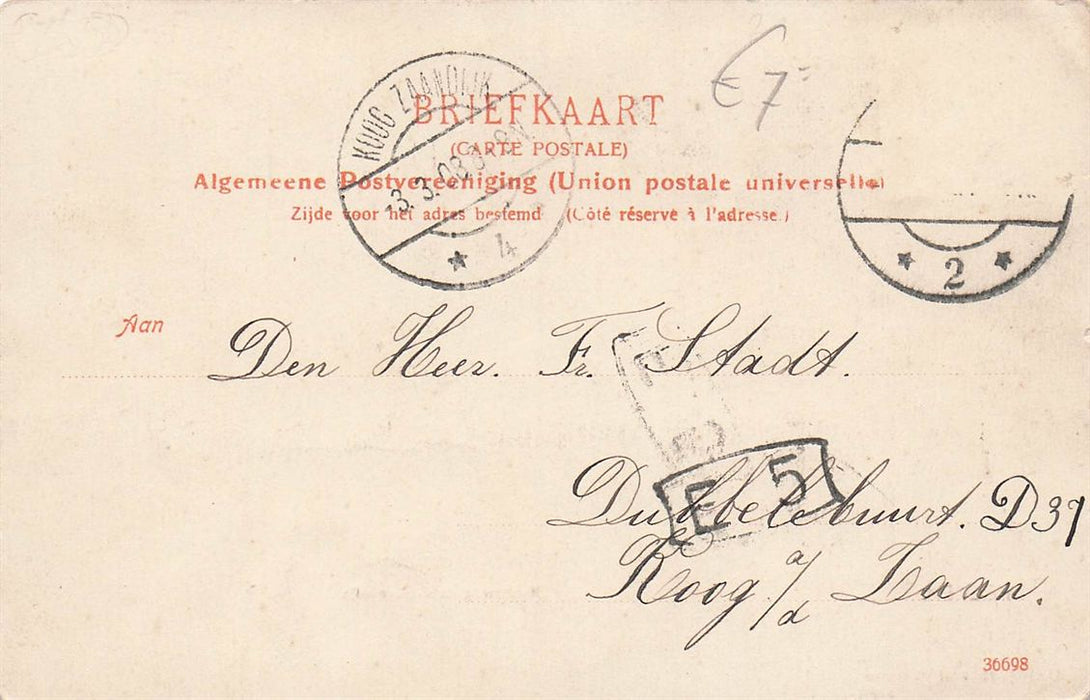 € 7-
KOOG ZAANDIJK
3.3.03
4
BRIEFKAART
(CARTE POSTALE)
Algemeene Postvereeniging (Union postale universelle)
Zijde voor het adres bestemd (Côté réservé à l'adresse.)
2
Aan
Den Heer. Fr. Stadt.
E 5
Dubbelebuurt. D37
Koog a/d Zaan.
36698